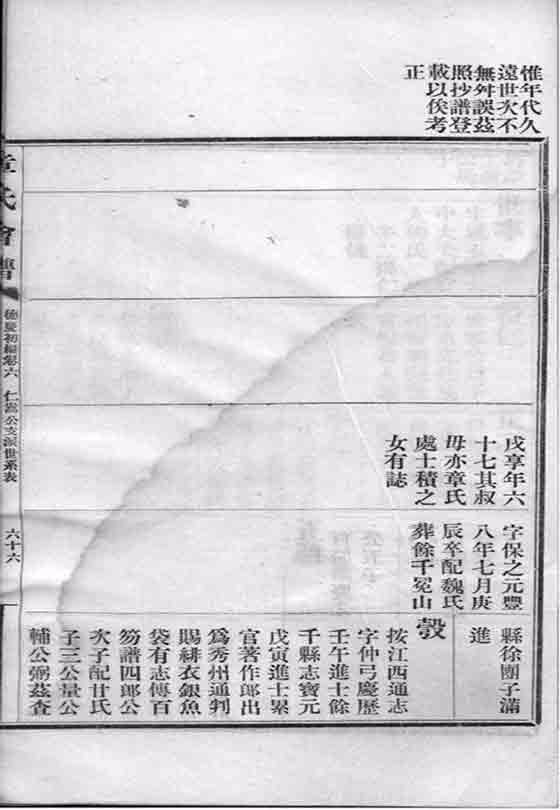 惟年代久
遠世次不
無舛誤茲
照抄譜登
載以俟考
正
戊享年六
十七其叔
毋亦章氏
處士積之
女有誌
字保之元豐
八年七月庚
辰卒配魏氏
葬餘千冕山
縣徐團子滿
進
按江西通志
字仲弓慶歷
壬午進士餘
千縣志寶元
戊寅進士累
官著作郎出
爲秀州通判
賜緋衣銀魚
袋有志傳百
笏譜四郎公
次子配甘氏
子三公量公
輔公弼茲查
章氏會譜
德慶初編卷六
仁嵩公支派世系表
六十六